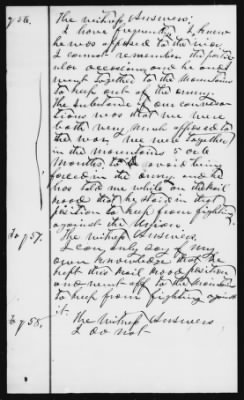 q. 56. The witness answers;
I have frequently I knew
he was opposed to the war.
I cannot remember the partic
ular occasions as he and I
went together to the mountains
to keep out of the army.
the substance of our conversa
tions was that we were
both very much opposed to
the war. We were together
in the mountains 5 or 6
months, to avoid being
forced in the army. and he
has told me while on the Rail
road that he staid in that
position to keep from fighting
against the Union.
To q 57. The witness answers.
I can only say of my
own knowledge that he
kept this Rail Road position
and went off to the mountains
to keep from fighting against
it.
To q 58, The witness answers
I do not